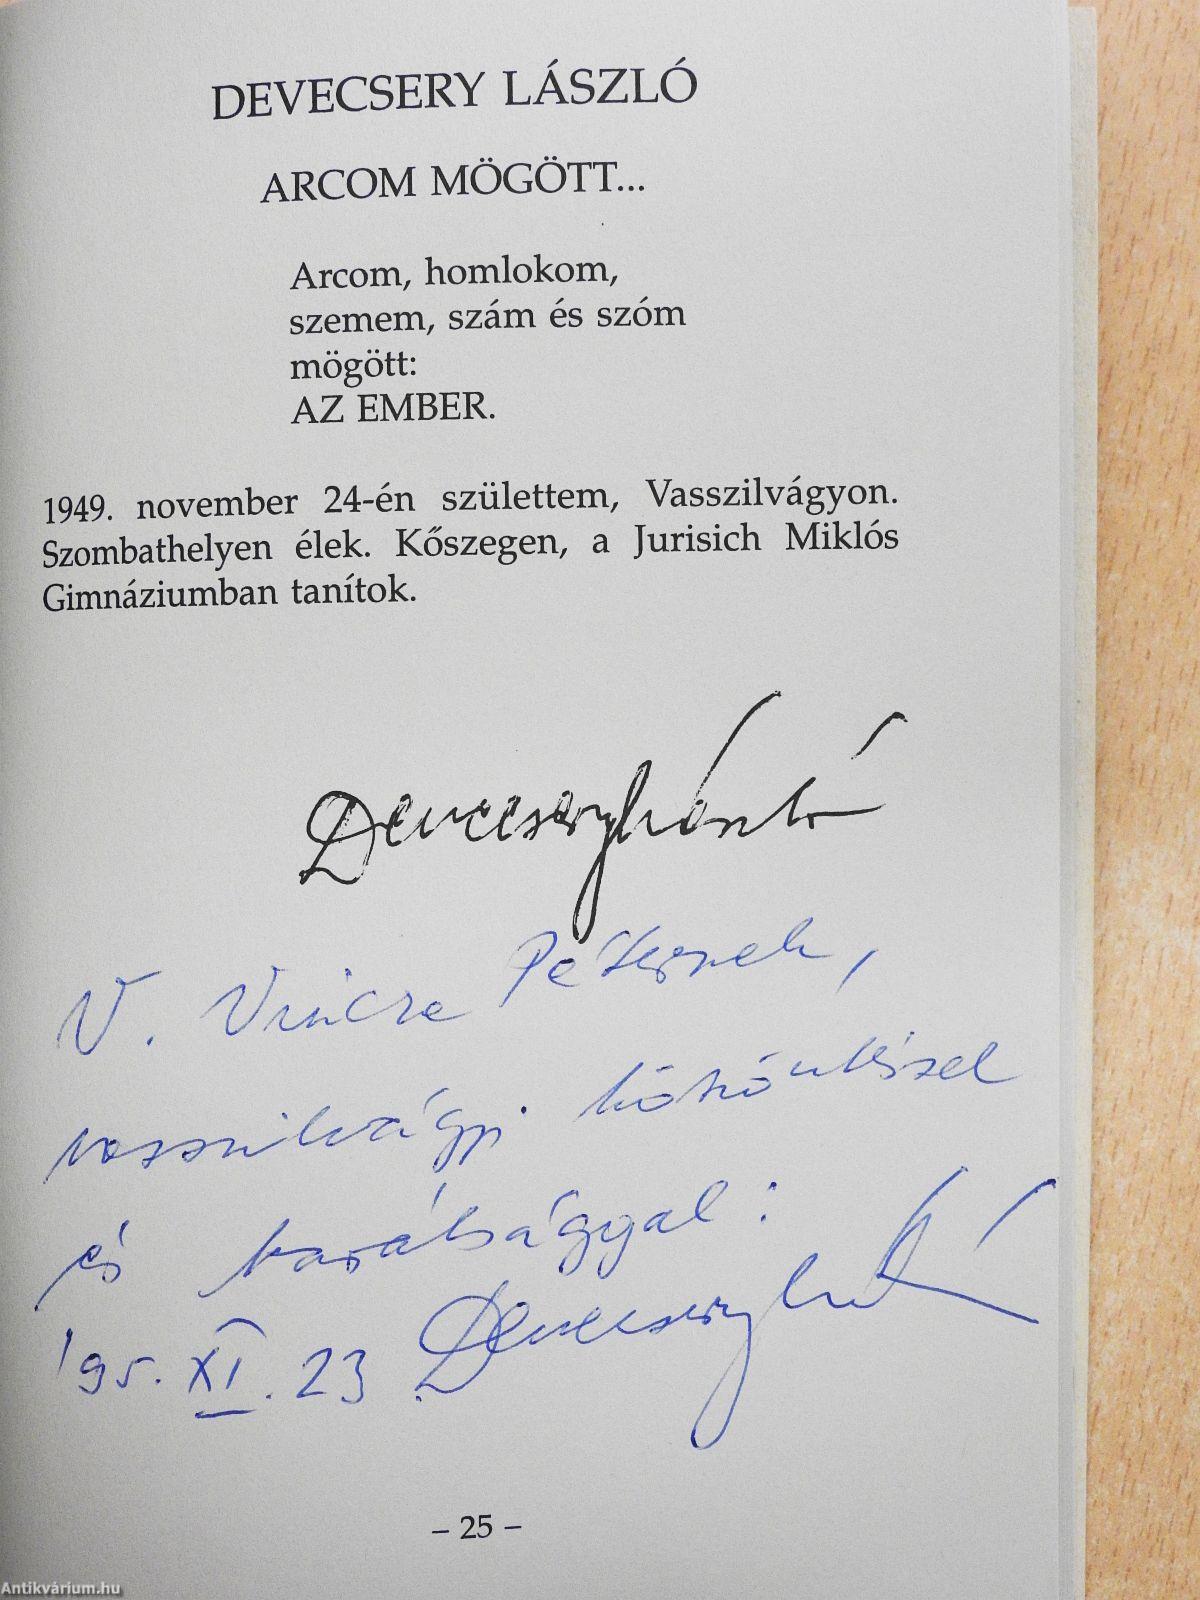 DEVECSERY LÁSZLÓ
ARCOM MÖGÖTT...
Arcom, homlokom,
szemem, szám és szóm
mögött:
AZ EMBER.
1949. november 24-én születtem, Vasszilvágyon.
Szombathelyen élek. Kőszegen, a Jurisich Miklós
Gimnáziumban tanítok.
Devecsery László
V. Vincze Péternek,
vasszilvágyi köszöntéssel
és barátsággal:
'95. XI. 23. Devecsery László
– 25 –
Antikvárium.hu